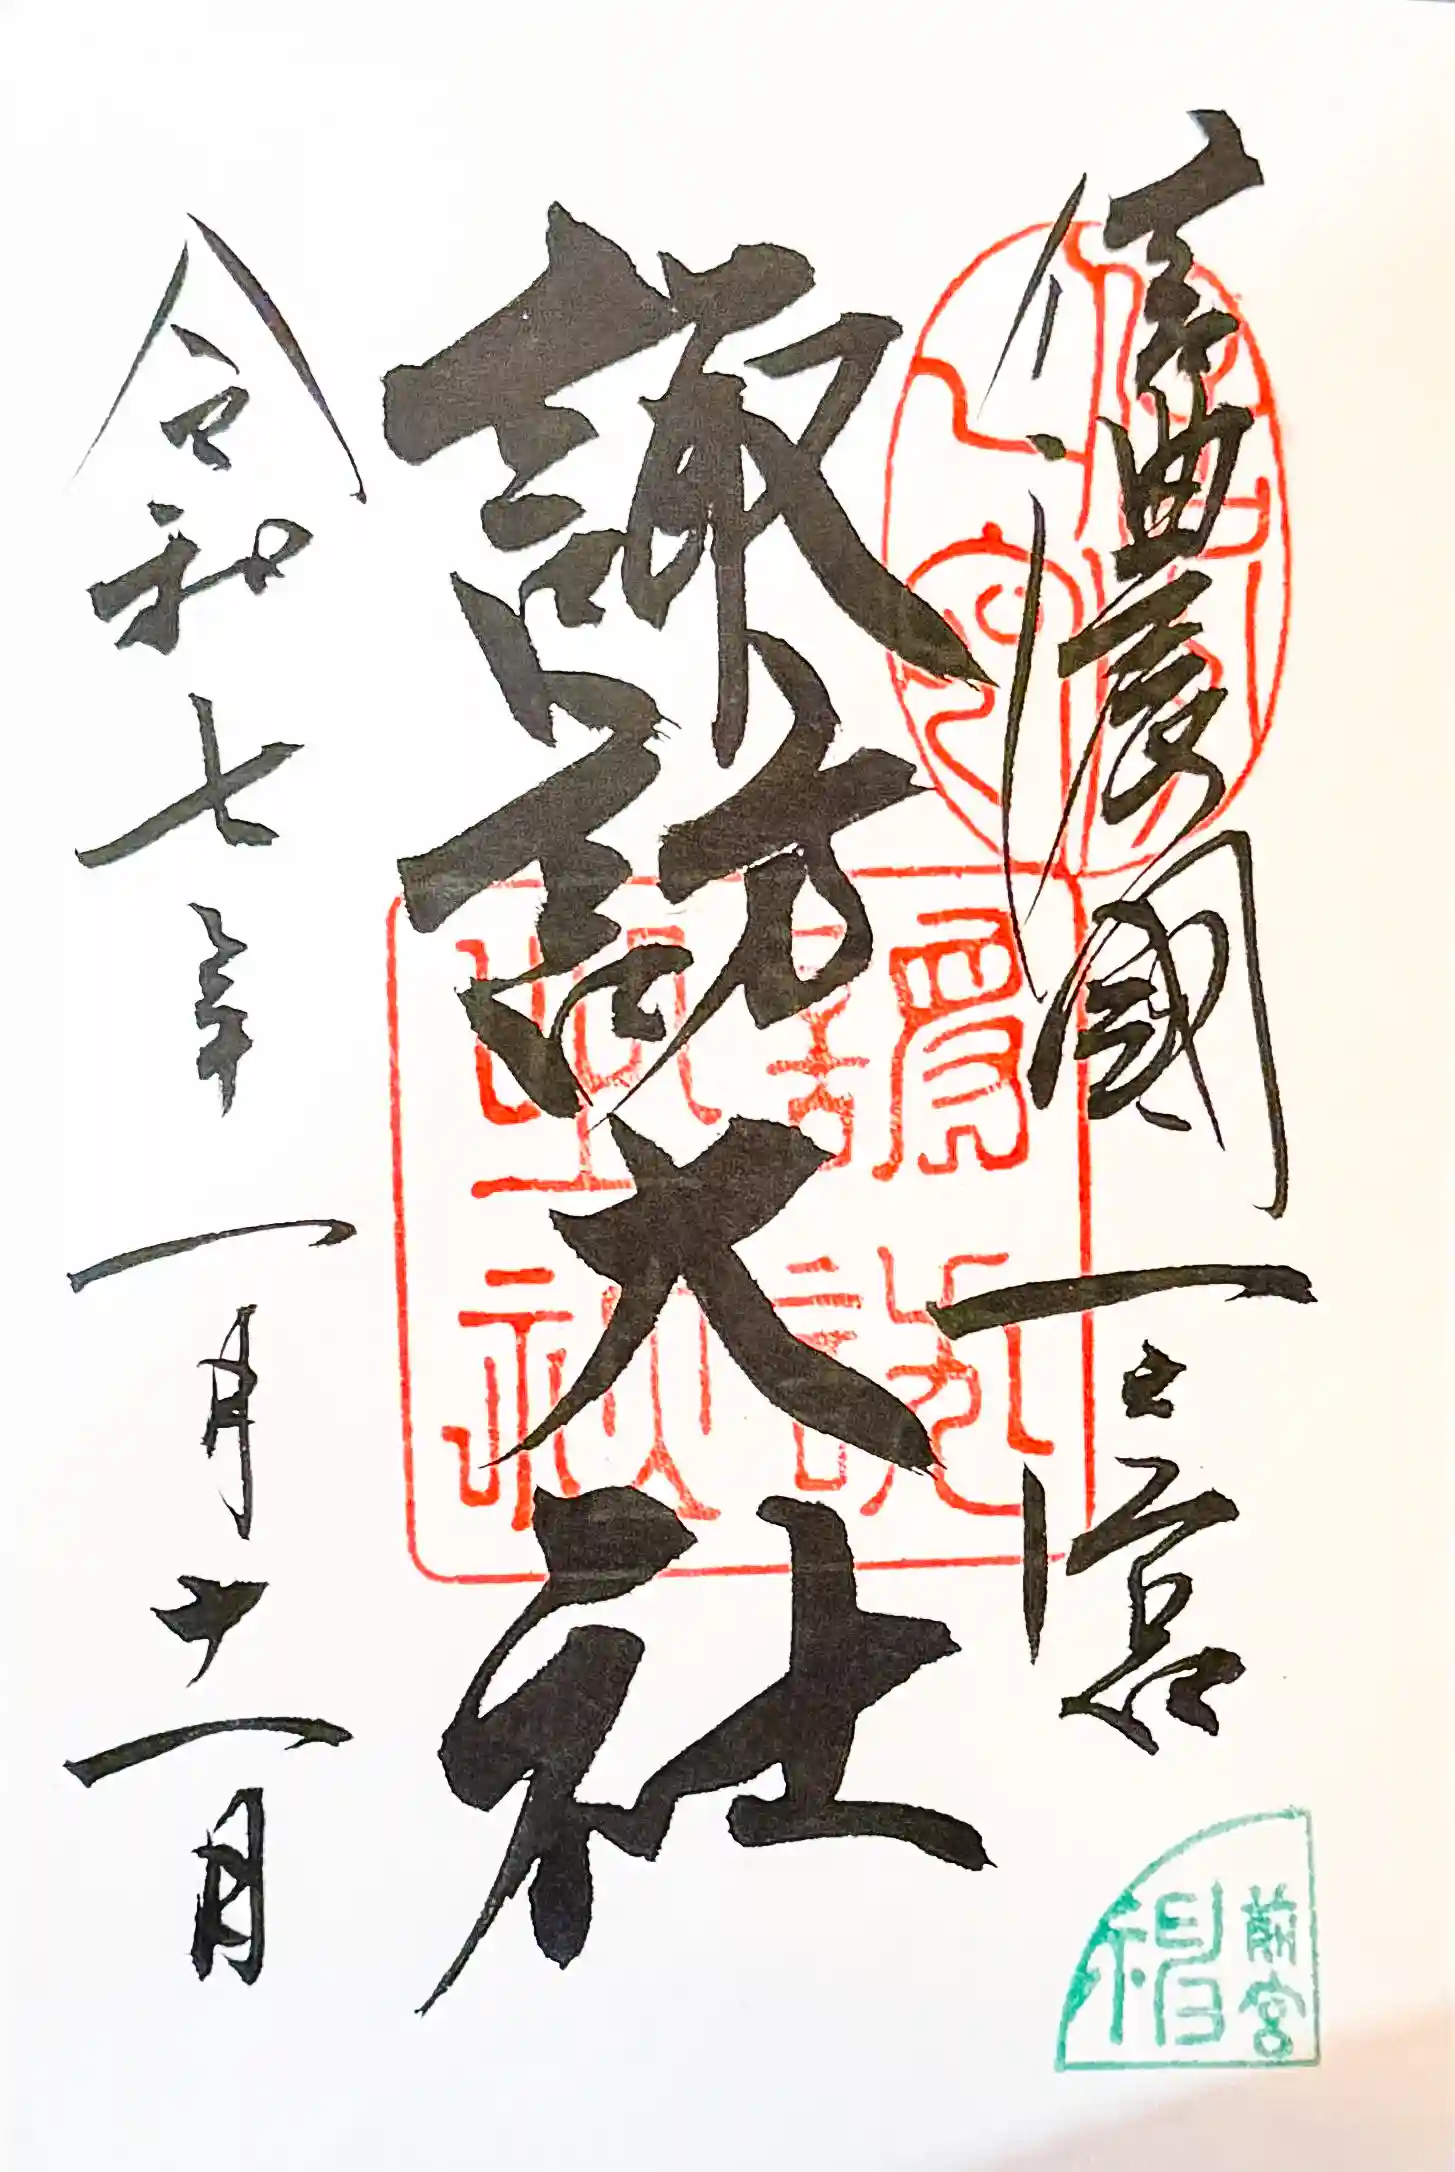 信濃國一之宮
諏訪大社
令和七年一月十一日
前宮